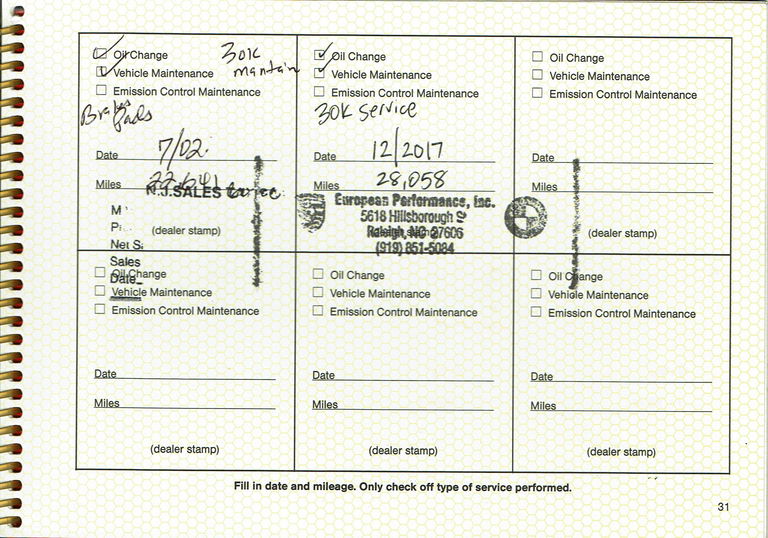 Oil Change
Vehicle Maintenance
30K
mantain
Emission Control Maintenance
Brakes
Pads
Date 7/02
Miles
N.J.SALES
M
P
(dealer stamp)
Net S
Sales
Date
Oil Change
Vehicle Maintenance
Emission Control Maintenance
30K Service
Date 12/2017
Miles 28,058
European Performance, Inc.
5618 Hillsborough S
Raleigh, NC 27606
(919) 851-5084
Oil Change
Vehicle Maintenance
Emission Control Maintenance
Date
Miles
(dealer stamp)
Oil Change
Vehicle Maintenance
Emission Control Maintenance
Date
Miles
(dealer stamp)
Oil Change
Vehicle Maintenance
Emission Control Maintenance
Date
Miles
(dealer stamp)
Oil Change
Vehicle Maintenance
Emission Control Maintenance
Date
Miles
(dealer stamp)
Fill in date and mileage. Only check off type of service performed.
31